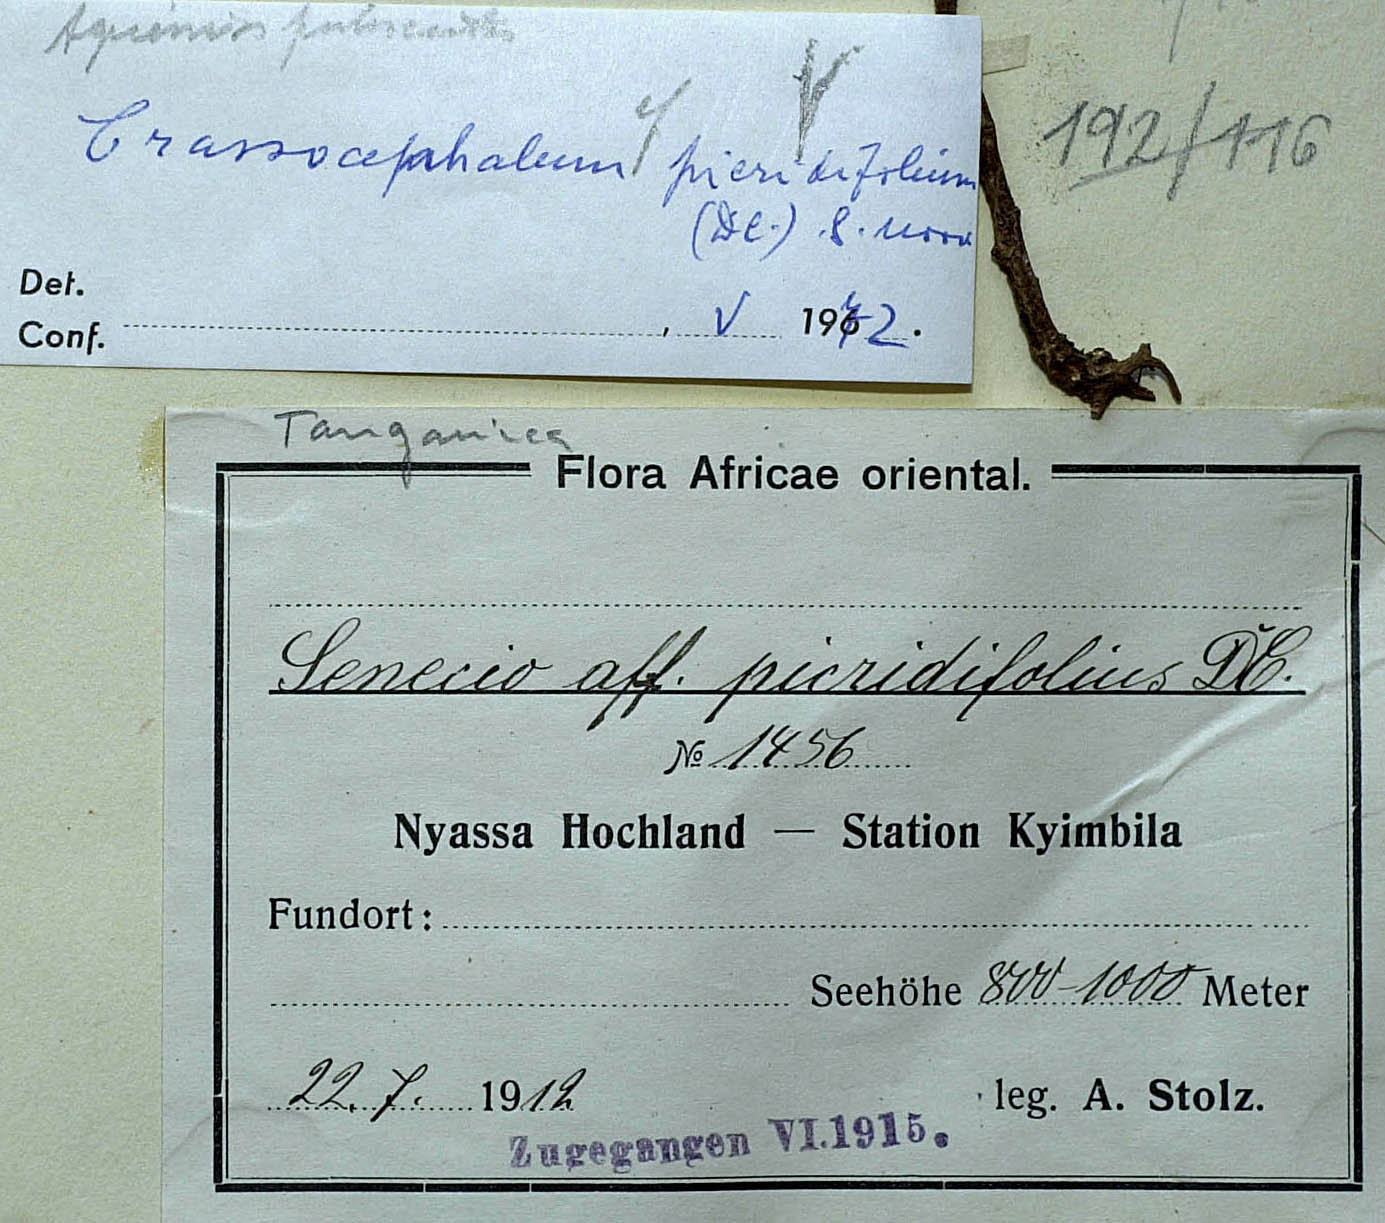 Crassocephalum picridifolium
(DC.) S. Moore
192/116
Det.
Conf. , V 1972.
Tanganica
Flora Africae oriental.
Senecio aff. picridifolius DC.
№ 1456
Nyassa Hochland — Station Kyimbila
Fundort:
Seehöhe 800-1000 Meter
22. 7. 1912 leg. A. Stolz.
Zugegangen VI.1915.